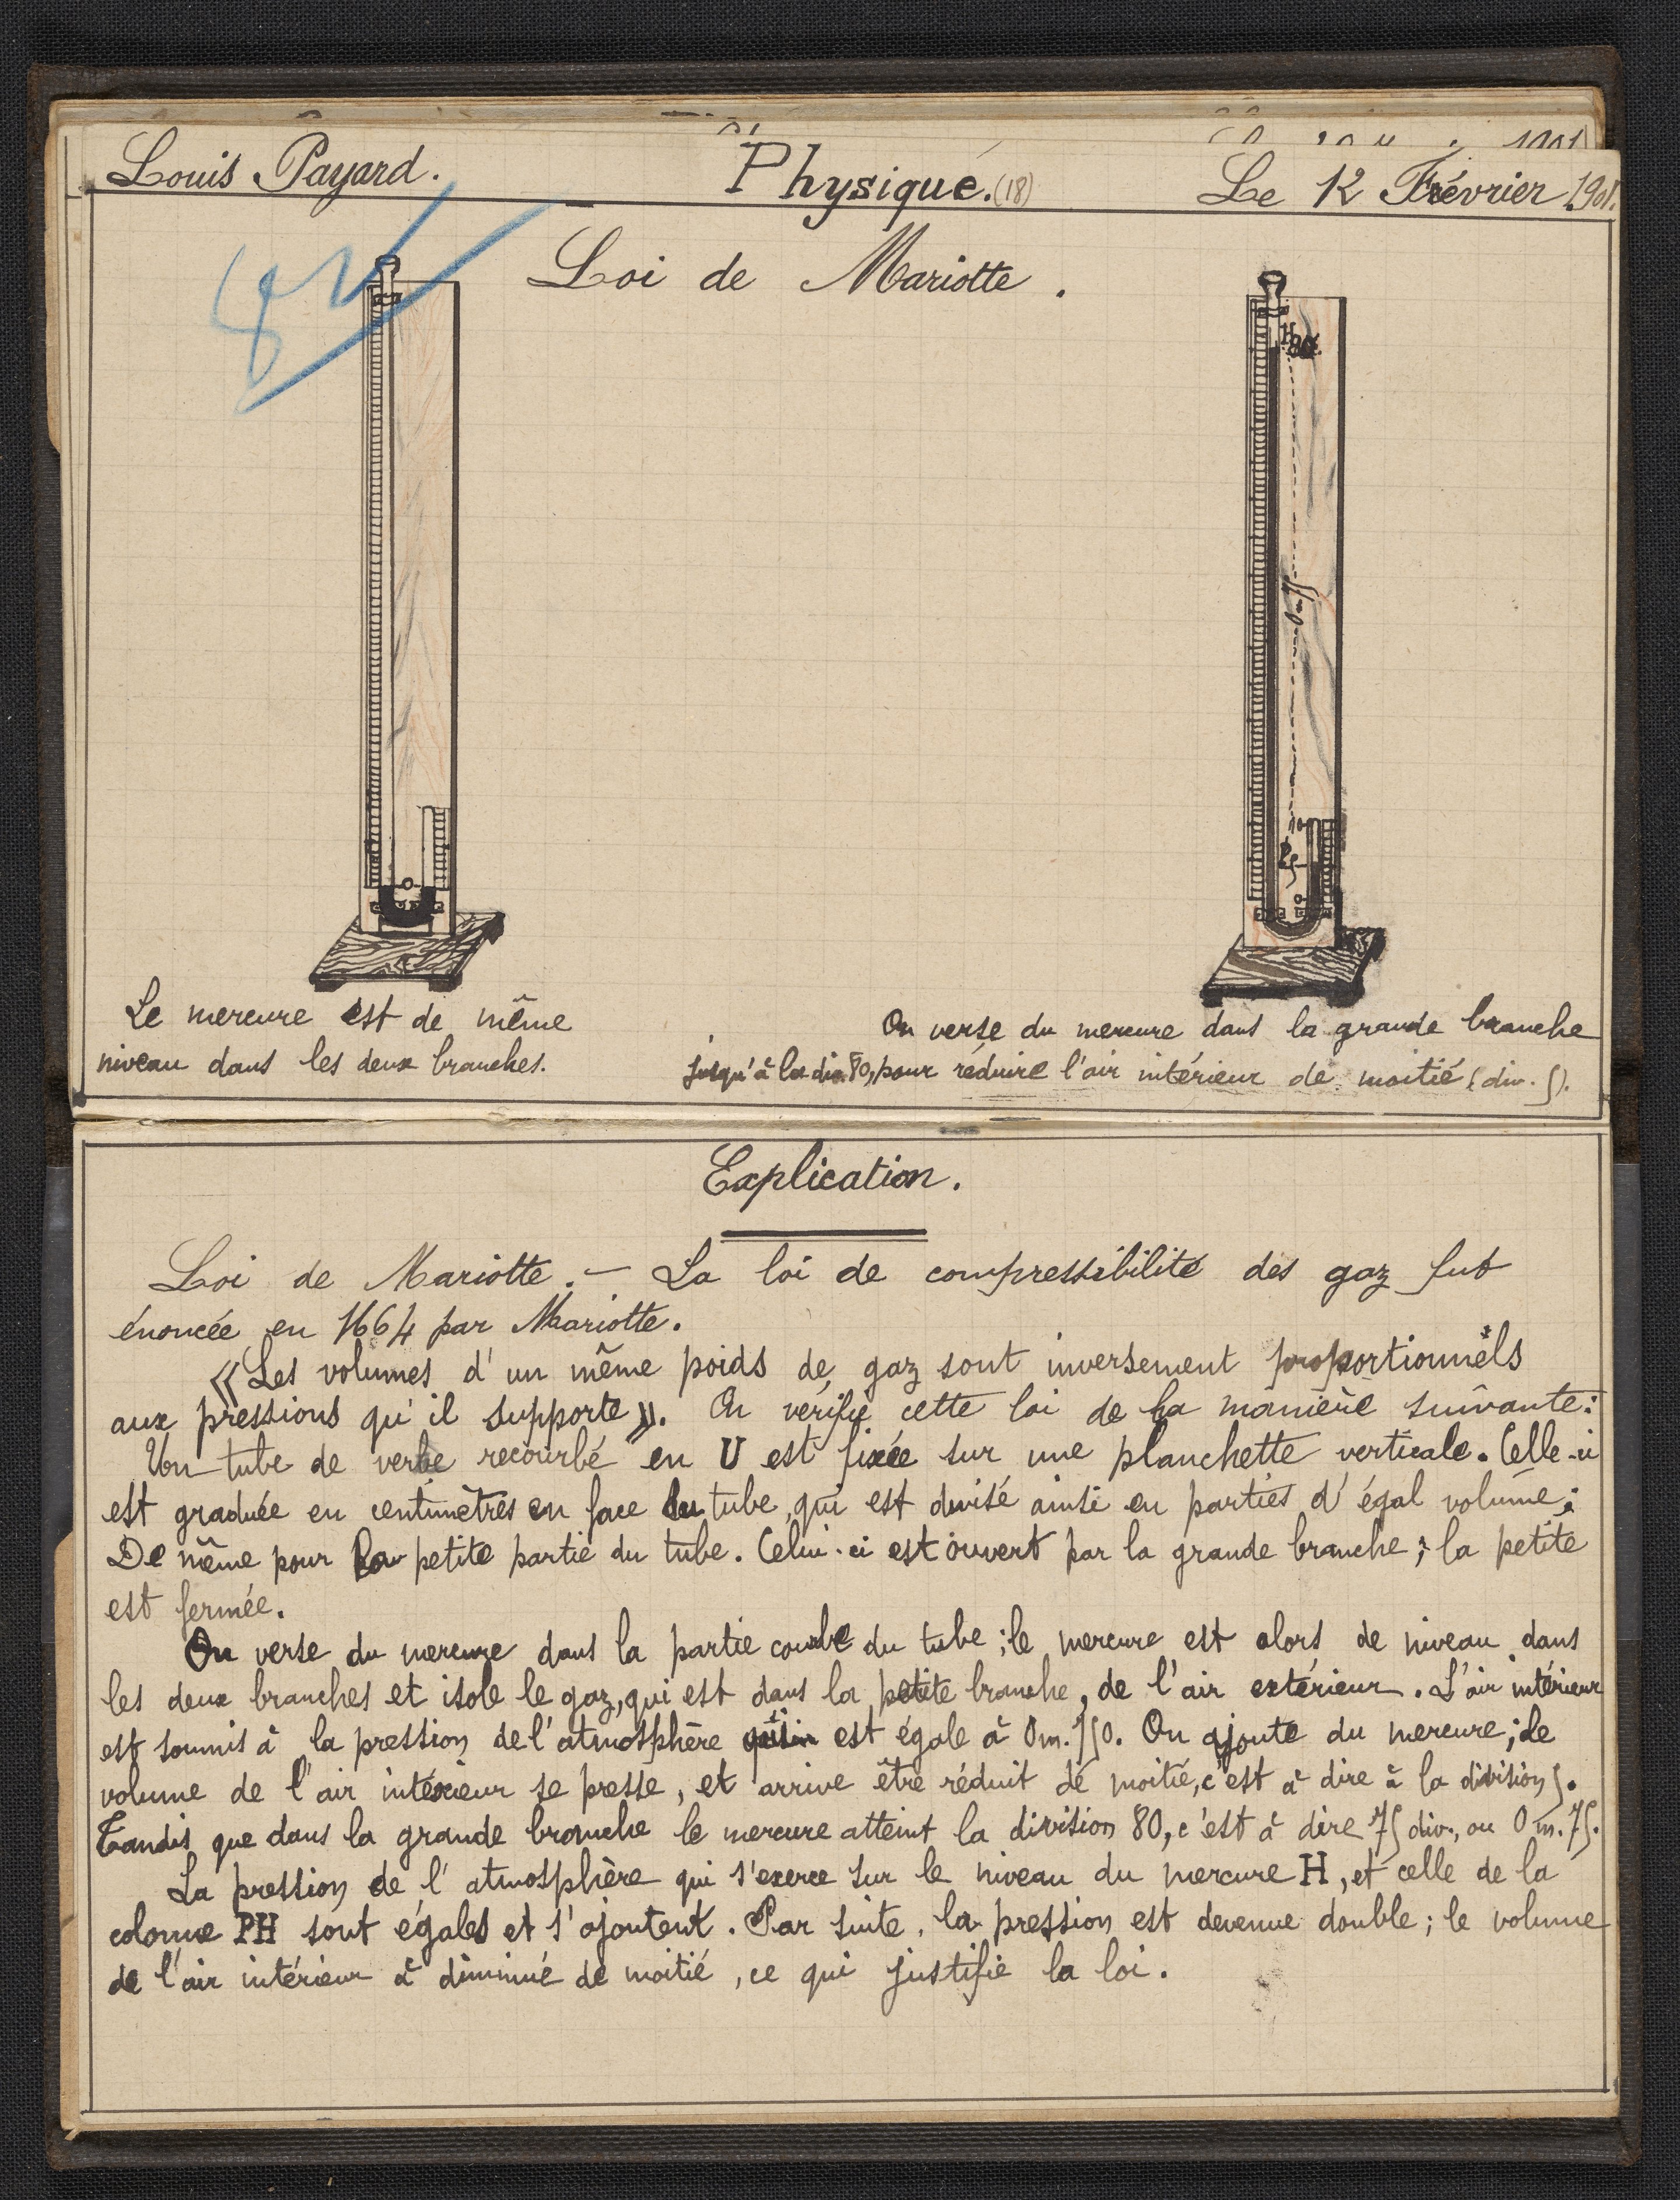 Louis Payard.
Physique. (18)
Le 12 Février 1901.
Loi de Mariotte.
H
80
0m75
10
P
5
0
0
Le mercure est de même
niveau dans les deux branches.
On verse du mercure dans la grande branche
jusqu'à la div. 80, pour réduire l'air intérieur de moitié (div. 5).
Explication.
Loi de Mariotte. – La loi de compressibilité des gaz fut
énoncée en 1664 par Mariotte.
«Les volumes d'un même poids de gaz sont inversement proportionnels
aux pressions qu'il supporte». On vérifie cette loi de la manière suivante:
Un tube de verre recourbé en U est fixée sur une planchette verticale. Celle-ci
est graduée en centimètres en face du tube, qui est divisé ainsi en parties d'égal volume;
De même pour la petite partie du tube. Celui-ci est ouvert par la grande branche; la petite
est fermée.
On verse du mercure dans la partie courbe du tube; le mercure est alors de niveau dans
les deux branches et isole le gaz, qui est dans la petite branche, de l'air extérieur. L'air intérieur
est soumis à la pression de l'atmosphère qui est égale à 0m.750. On ajoute du mercure; le
volume de l'air intérieur se presse, et arrive être réduit de moitié, c'est à dire à la division 5.
Tandis que dans la grande branche le mercure atteint la division 80, c'est à dire 75 div., ou 0 m. 75.
La pression de l'atmosphère qui s'exerce sur le niveau du mercure H, et celle de la
colonne PH sont égales et s'ajoutent. Par suite, la pression est devenue double; le volume
de l'air intérieur à diminué de moitié, ce qui justifie la loi.